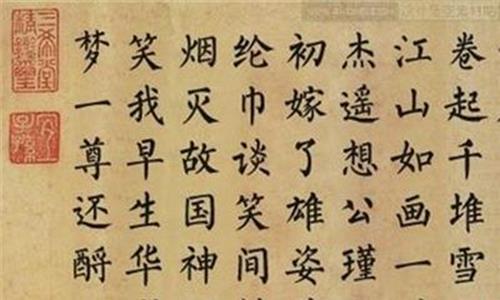 卷起千堆雪
江山如画一
杰遥想公瑾
初嫁了雄姿
纶巾谈笑间
烟灭故国神
笑我早生华
梦一尊还酹
三希堂
精鑑璽
宜子孫